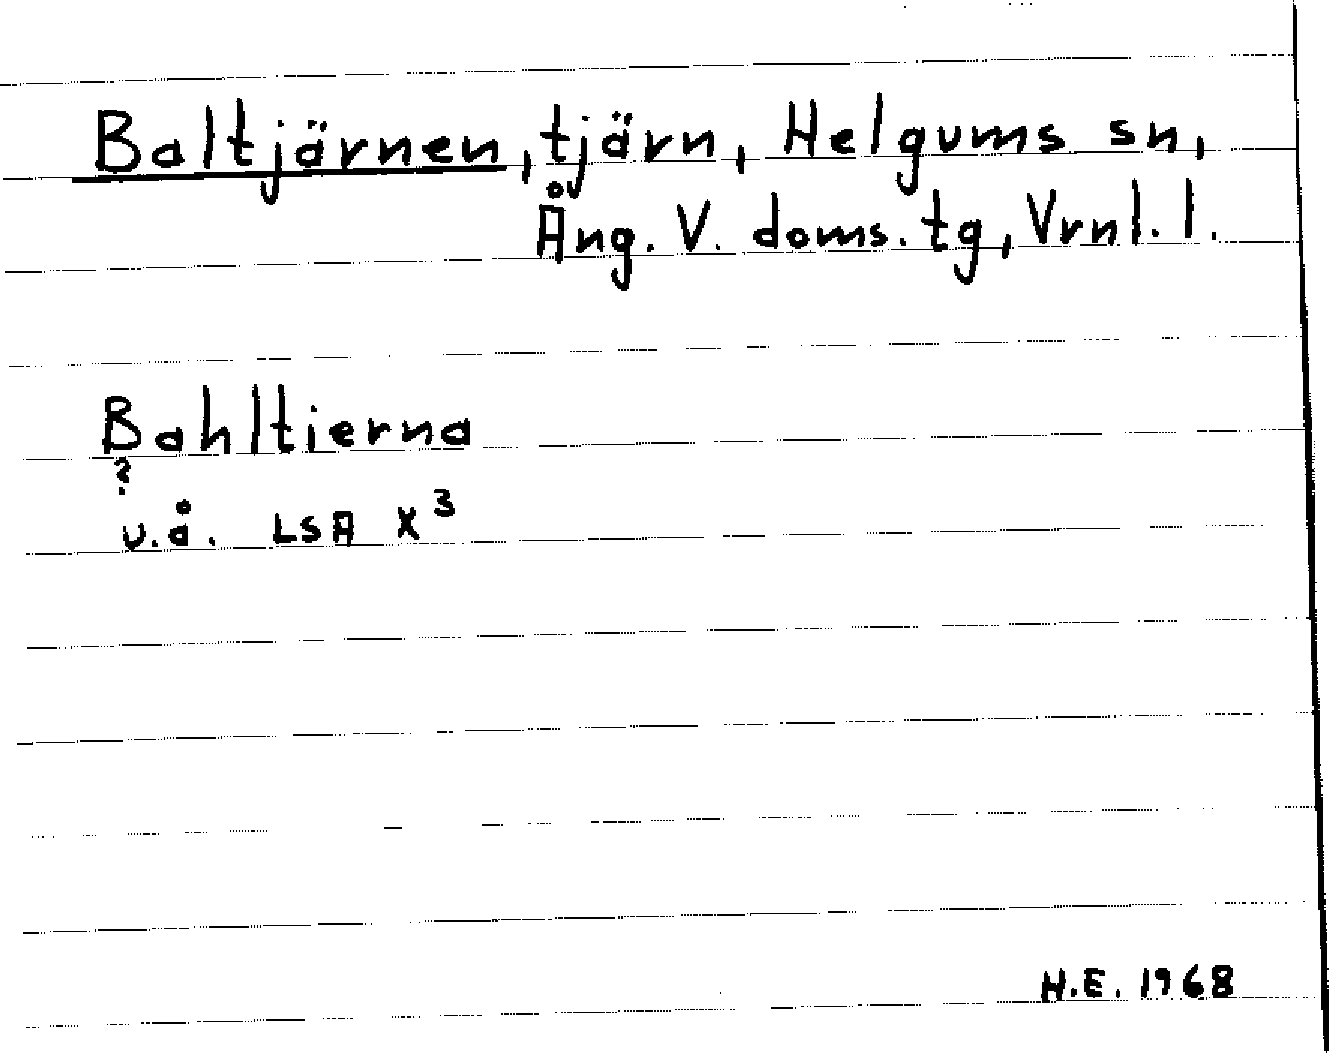 Baltjärnen, tjärn, Helgums sn,
Ång. V. doms. tg, Vrnl. l.
Bahltierna
?
u.å. LSA X³
H.E. 1968